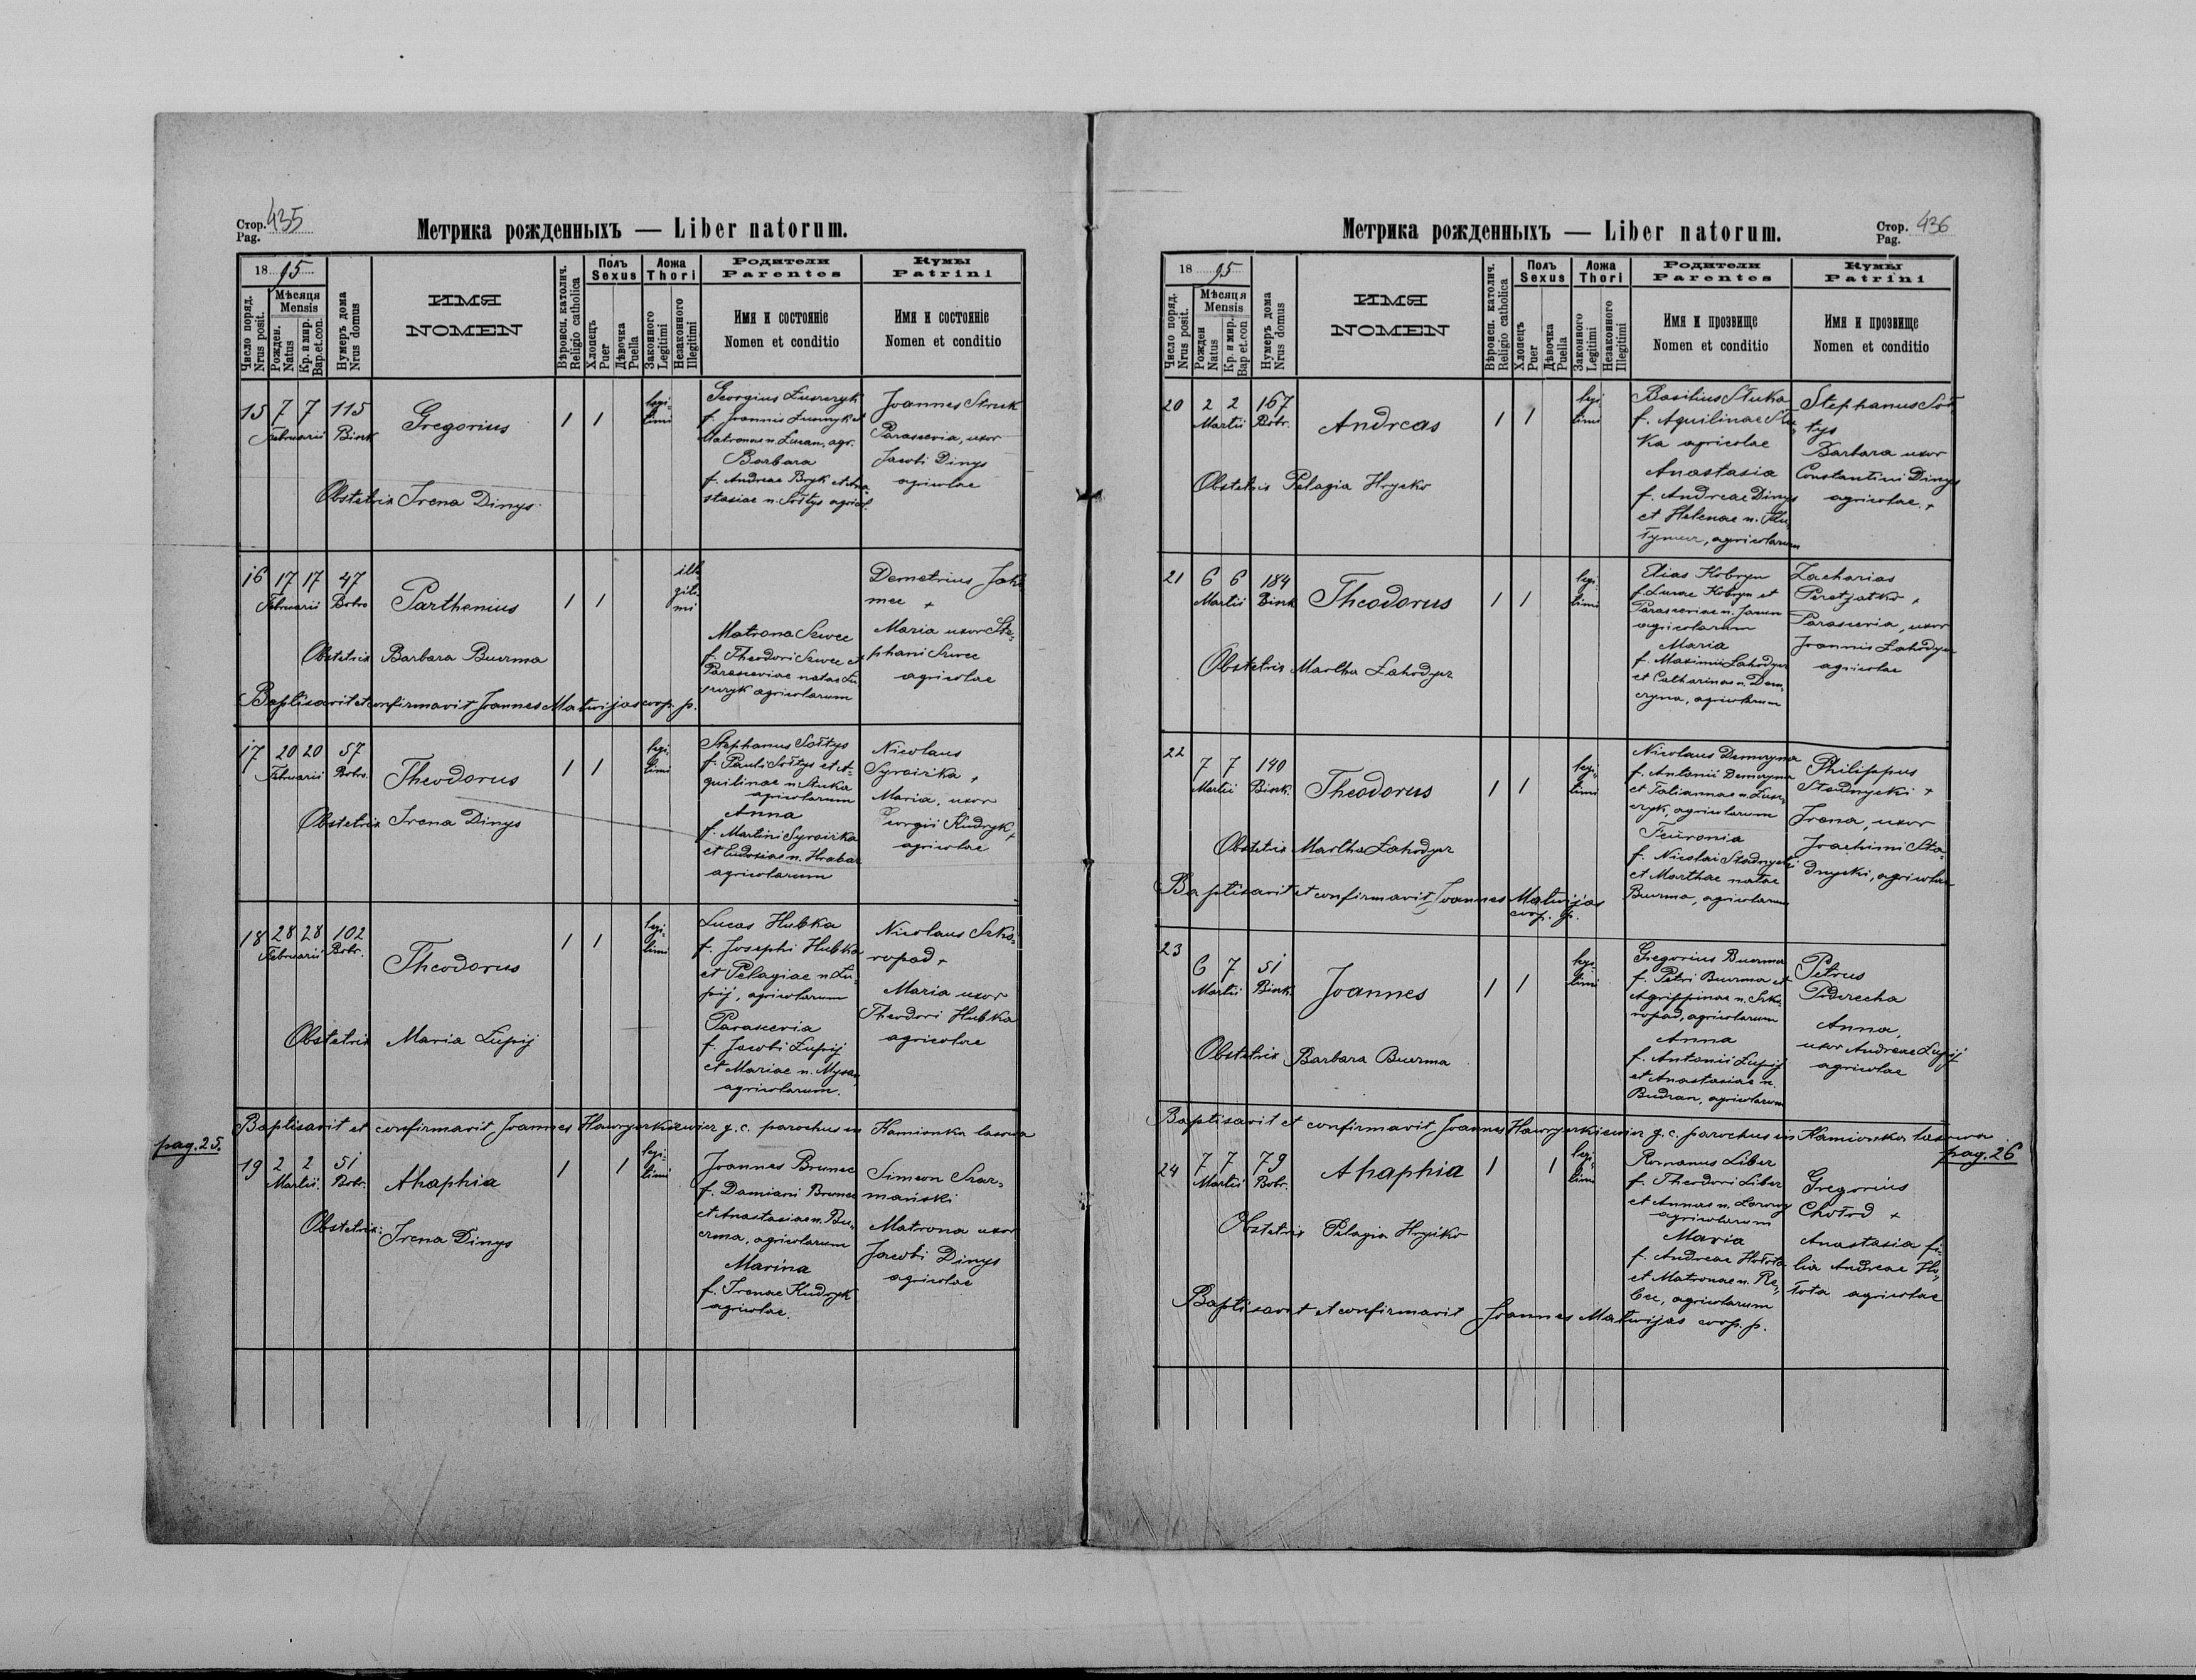 Стор. 435
Pag.
Метрика рожденныхъ — Liber natorum.
18 95
Число поряд.
Nrus posit.
Мѣсяця
Mensis
Рожден.
Natus
Кр. и мир.
Bap.et.con.
Нумеръ дома
Nrus domus
ИМЯ
NOMEN
Вѣроиси. католич.
Religio catholica
Полъ
Sexus
Хлопецъ
Puer
Дѣвочка
Puella
Ложа
Thori
Законного
Legitimi
Незаконного
Illegitimi
Родители
Parentes
Имя и состояніе
Nomen et conditio
Кумы
Patrini
Имя и состояніе
Nomen et conditio
15 7 7 115
Februarii
Gregorius
1 1
legi-
timi
Georgius
f. Joannis
Matronae n. agr.
Barbara
f. Andreae Bryk et Ana
stasiae n. Sołtys agricol.
Joannes Struk
Parascevia, uxor
Jacobi Dinys
agricolae
Obstetrix Irena Dinys
16 17 17 47
Februarii
Parthenius
1 1
ille
giti
mi
Matrona Szwec
f. Theodori Szwec et
Parasceviae natae
agricolarum
Demetrius
+
Maria uxor Ste-
phani Szwec
agricolae
Obstetrix Barbara Buerma
Baptisavit et confirmavit Joannes Matwijas coop. p.
17 20 20 57
Februarii Bobr.
Theodorus
1 1
legi
timi
Stephanus Sołtys
f. Pauli Sołtys et A-
quilinae n. Stuka
agricolarum
Anna
f. Martini Syroizka
et Eudoxiae n. Hrabar
agricolarum
Nicolaus
Syroizka +
Maria, uxor
Georgii Kudryk +
agricolae
Obstetrix Irena Dinys
18 28 28 102
Februarii Bobr.
Theodorus
1 1
legi-
timi
Lucas Hubka
f. Josephi Hubka
et Pelagiae n Łu-
pij, agricolarum
Parascevia
f. Jacobi Łupij
et Mariae n.
agricolarum.
Nicolaus Szko-
ropad +
Maria uxor
Theodori Hubka
agricolae
Obstetrix Maria Łupij
Baptisavit et confirmavit Joannes Hawryszkiewicz g. c. parochus in Kamionka lasowa
pag. 25.
19 2 2 51
Martii. Bobr.
Ahaphia
1 1
legi-
timi
Joannes Brunec
f. Damiani Brunec
et Anastasiae n. Bu-
erma, agricolarum
Marina
f. Irenae Kudryk
agricolae.
Simeon Szar-
mański
Matrona uxor
Jacobi Dinys
agricolae
Obstetrix: Irena Dinys
Метрика рожденныхъ — Liber natorum.
Стор. 436
Pag.
18 95
Число поряд.
Nrus posit.
Мѣсяця
Mensis
Рожден
Natus
Кр. и мир.
Bap et.con
Нумеръ дома
Nrus domus
ИМЯ
NOMEN
Вѣроиси. католич.
Religio catholica
Полъ
Sexus
Хлопецъ
Puer
Дѣвочка
Puella
Ложа
Thori
Законного
Legitimi
Незаконного
Illegitimi
Родители
Parentes
Имя и прозвище
Nomen et conditio
Кумы
Patrini
Имя и прозвище
Nomen et conditio
20 2 2 167
Martii Bobr.
Andreas
1 1
legi
timi
Basilius Stuka
f. Aquilinae Stu-
ka agricolae
Anastasia
f. Andreae Dinys
et Helenae n.
agricolarum
Stephanus Soł-
tys
Barbara uxor
Constantini Dinys
agricolae. +
Obstetrix Pelagia Hrycko
21 6 6 184
Martii
Theodorus
1 1
legi-
timi
Elias Kobryn
f. Lucae Kobryn et
Parasceviae n.
agricolarum
Maria
f. Maximi Łahodyn
et Catharinae n. Dem-
czyna, agricolarum
Zacharias
Peretjatko +
Parascevia, uxor
Joannis Łahodyn
agricolae
Obstetrix Martha
22
7 7 140
Martii
Theodorus
1 1
legi-
timi
Nicolaus Demczyna
f. Antonii Demczyna
et Taliannae n.
agricolarum
Feuronia
f. Nicolai Stadnycki
et Marthae natae
Buerma, agricolarum
Philippus
Stadnycki +
Irena, uxor
Joachimi Sta-
dnycki, agricolae
Obstetrix Martha
Baptisavit et confirmavit Joannes Matwijas
coop. p.
23
6 7 51
Martii
Joannes
1 1
legi-
timi
Gregorius Buerma
f. Petri Buerma et
Agrippinae n. Szko-
ropad, agricolarum
Anna
f. Antonii Łupij
et Anastasiae n.
Budzan, agricolarum
Petrus
Podrecha
Anna,
uxor Andreae Łupij
agricolae
Obstetrix Barbara Buerma
Baptisavit et confirmavit Joannes Hawryszkiewicz g. c. parochus in Kamionka lasowa
pag. 26
24 7 7 79
Martii Bobr.
Ahaphia
1 1
legi-
timi
Romanus Liber
f. Theodori Liber
et Annae n.
agricolarum
Maria
f. Andreae Hołota
et Matronae n. Re-
bec, agricolarum
Gregorius
Chołod +
Anastasia fi-
lia Andreae Ho-
łota agricolae
Obstetrix Pelagia Hrycko
Baptisavit et confirmavit Joannes Matwijas coop. p.